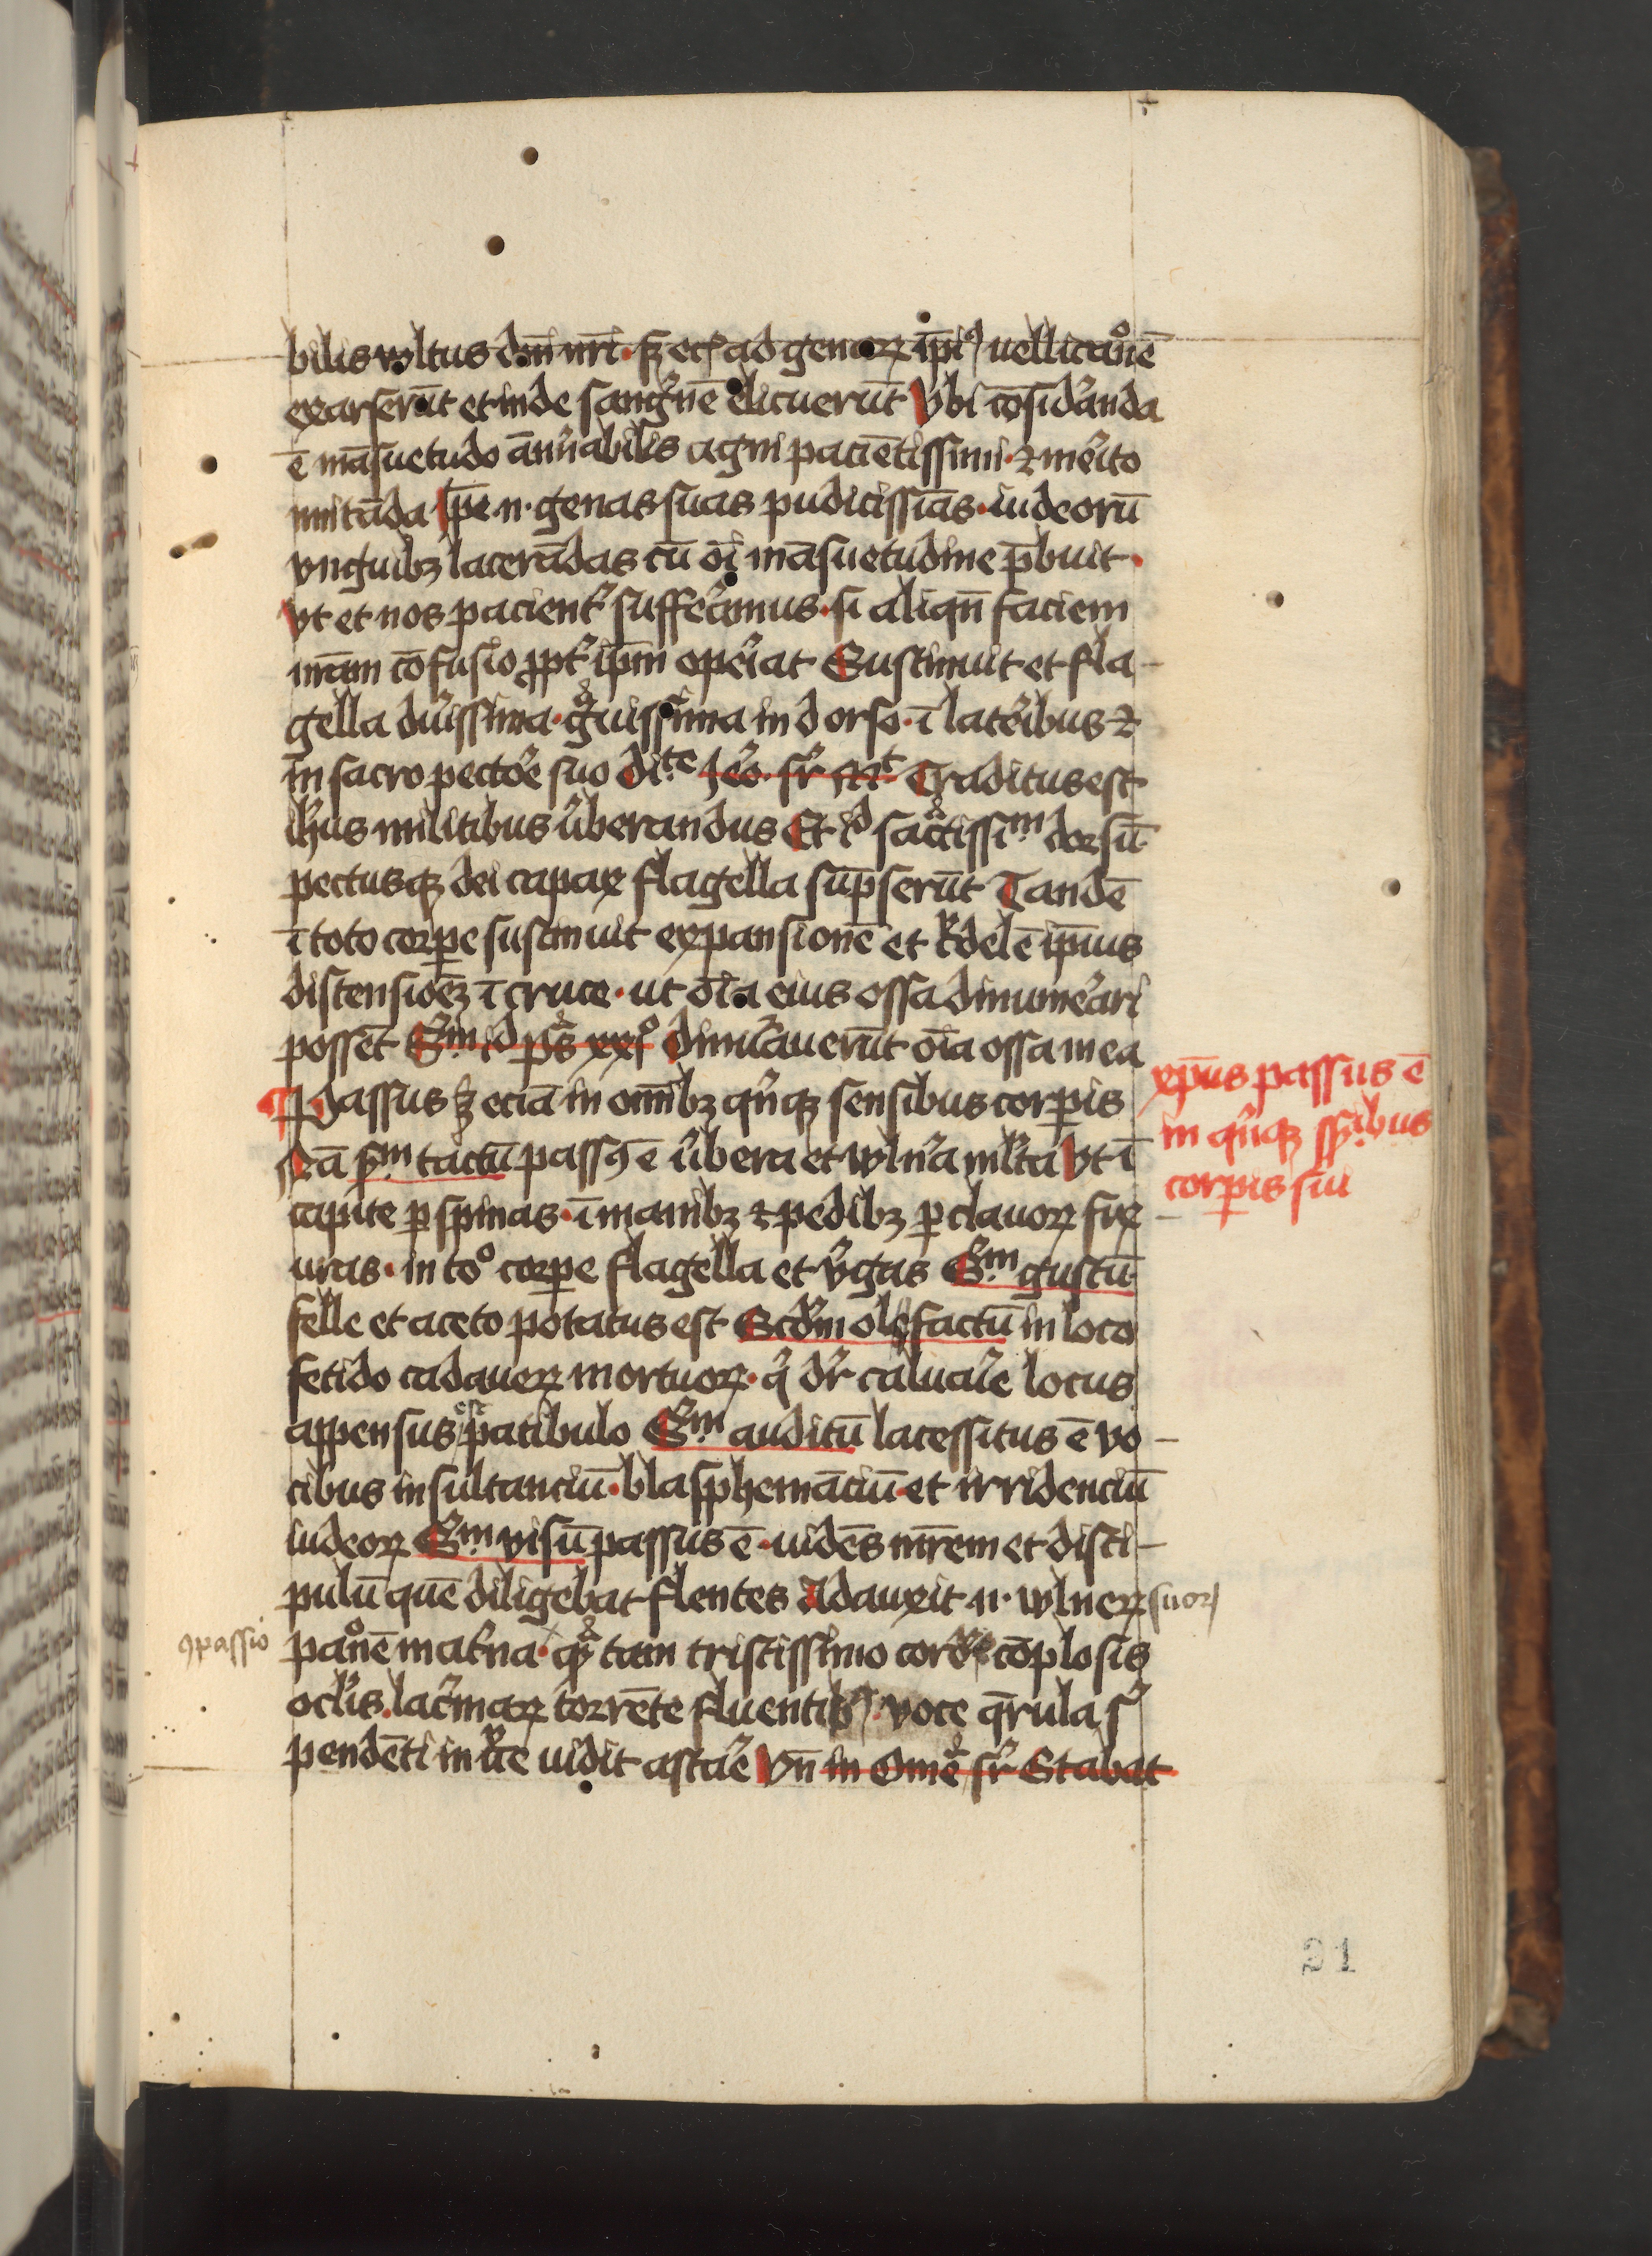 bilis vultus dnī nrī · sꝫ etꝭ ad genaꝝ ip̄iꝰ vellicaͦnē
exarserūt et inde sang'nē elicuerūt Vbi cōsid'anda
ē māsuetudo am̄rabilis agni paciētissimi · ⁊ me'ito
imitāda Ip̄e n· genas suas pudicissīas · iudeorū
vnguibꝫ lacerādas cū oī māsuetudine p̄buit ·
Vt et nos pacient' suffe'amus · si aliqn̄ faciem
nr̄am cōfusio ꝓpt' ip̄m ope'iat Sustinuit et fla-
gella du'issima · gͣuissima in dorso · ī late'ibus ⁊
in sacro pecto'e suo Traditus est
ih̄us militibus v'berandus Et sāctissim dorsū
pectusqꝫ dei capax flagella sup̄serūt Tandē
ī toto corꝑe sustinuit expansionē et c'delē ip̄ius
distensiōēꝫ ī cruce · ut oīa eius ossa dinume'ari
possēt Sm id ps xxi° Dinu'auerūt oīa ossa mea
Passus ꝫ eciā in omībꝫ qͥnqꝫ sensibus corꝑis
Nā sm tactū passꝰ ē v'bera et vln'a ml'ta Vt ī
capite ꝑ spinas · ī manibꝫ ⁊ pedibꝫ ꝑ clavoꝝ fix-
uras · in to° corꝑe flagella et v'gas Sm gustū
felle et aceto potatus est Scd'm olefactū in loco
fetido cadaueꝝ mortuoꝝ · qͥ dr̄ caluaꝛ'e locus
appensus est patibulo Sm auditū lacessitus ē vo-
cibus insultanciū · blasphemāciū · et irridenciū
iudeoꝝ Sm visū passus ē · uidēs mr̄em et disci-
pulū quē diligebat flentes Adauxit n· vlneꝝ suoꝝ
paͦnē mat'na · qͣ tam tristissimo corde cōplosis
ocl'is lac'maꝝ torrēte fluentibꝰ voce q̄rula s'
pendēti in c'ce uidit asta'e Vn̄ in Omē sr̄ Stabat
xp̄us passus ē
in qͥnqꝫ
corꝑis sui
ꝯpassio
21